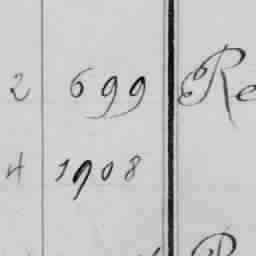 2 699 Re
4 1908